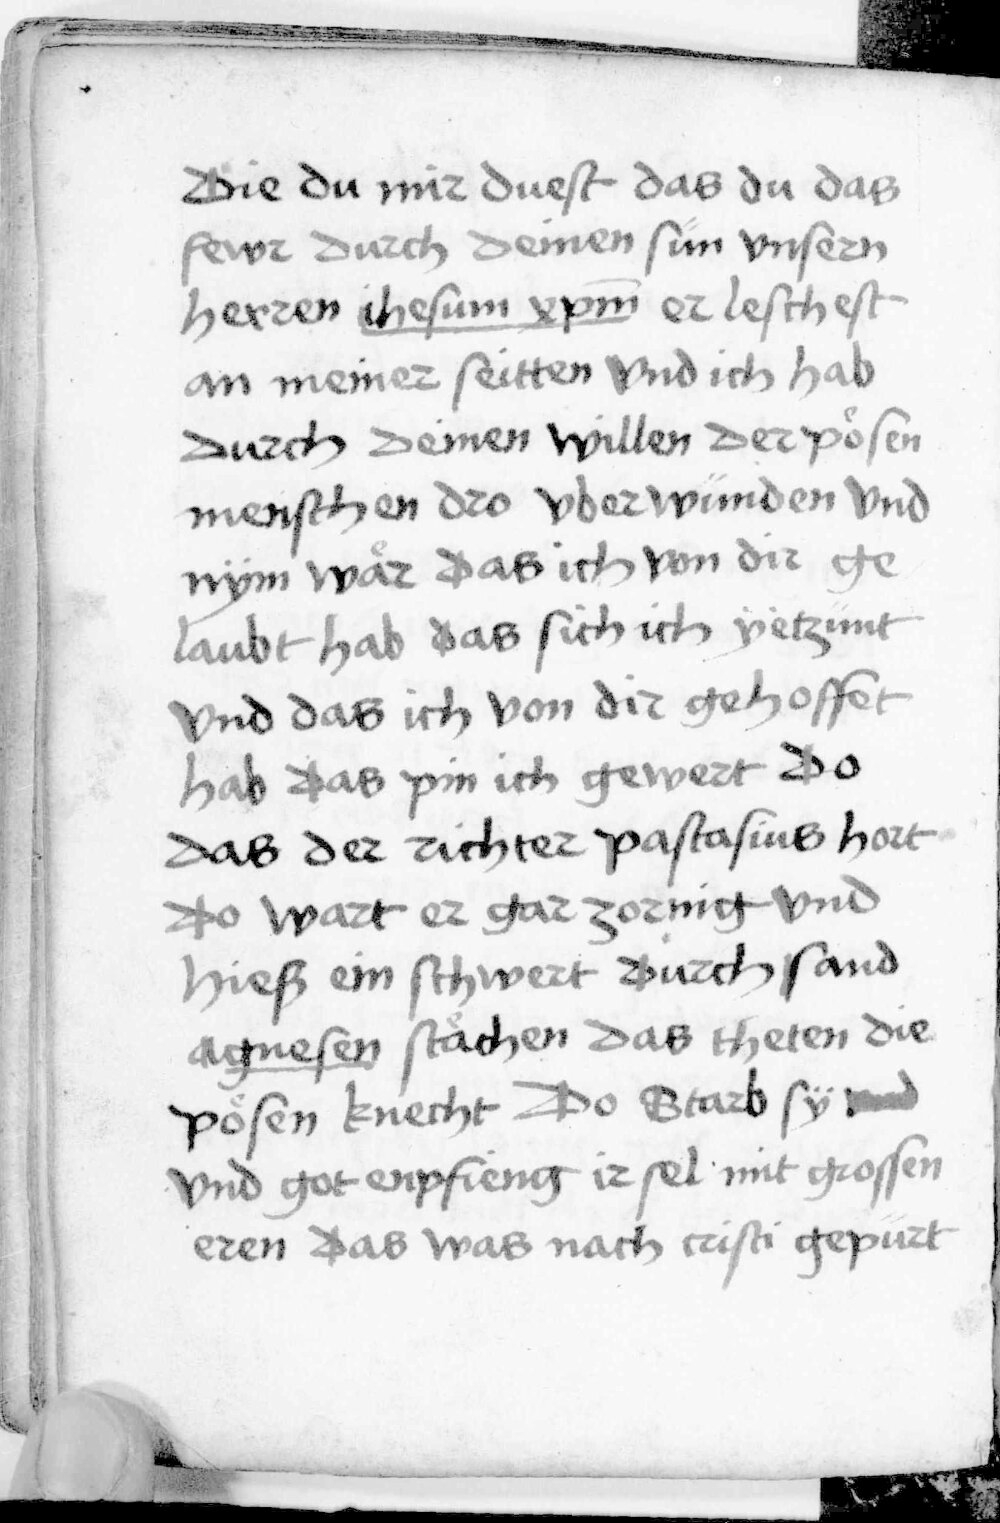 Die du mir duest das du das
fewr durch deinen sün vnsern
herren ihesum xpm̄ er leschest
an meiner seitten vnd ich hab
durch deinen willen der poͤsen
menschen dro vber wünden vnd
nÿm waͤr das ich von dir ge
laubt hab das sich ich ÿetzünt
vnd das ich von dir gehoffet
hab das pin ich gewert Do
das der richter pastasius hort
Do wart er gar zornig vnd
hieß ein schwert dürch sand
agnesen staͤchen das theten die
poͤsen knecht Do Starb sÿ
vnd got enpfieng ir sel mit grossen
eren das was nach cristi gepürt